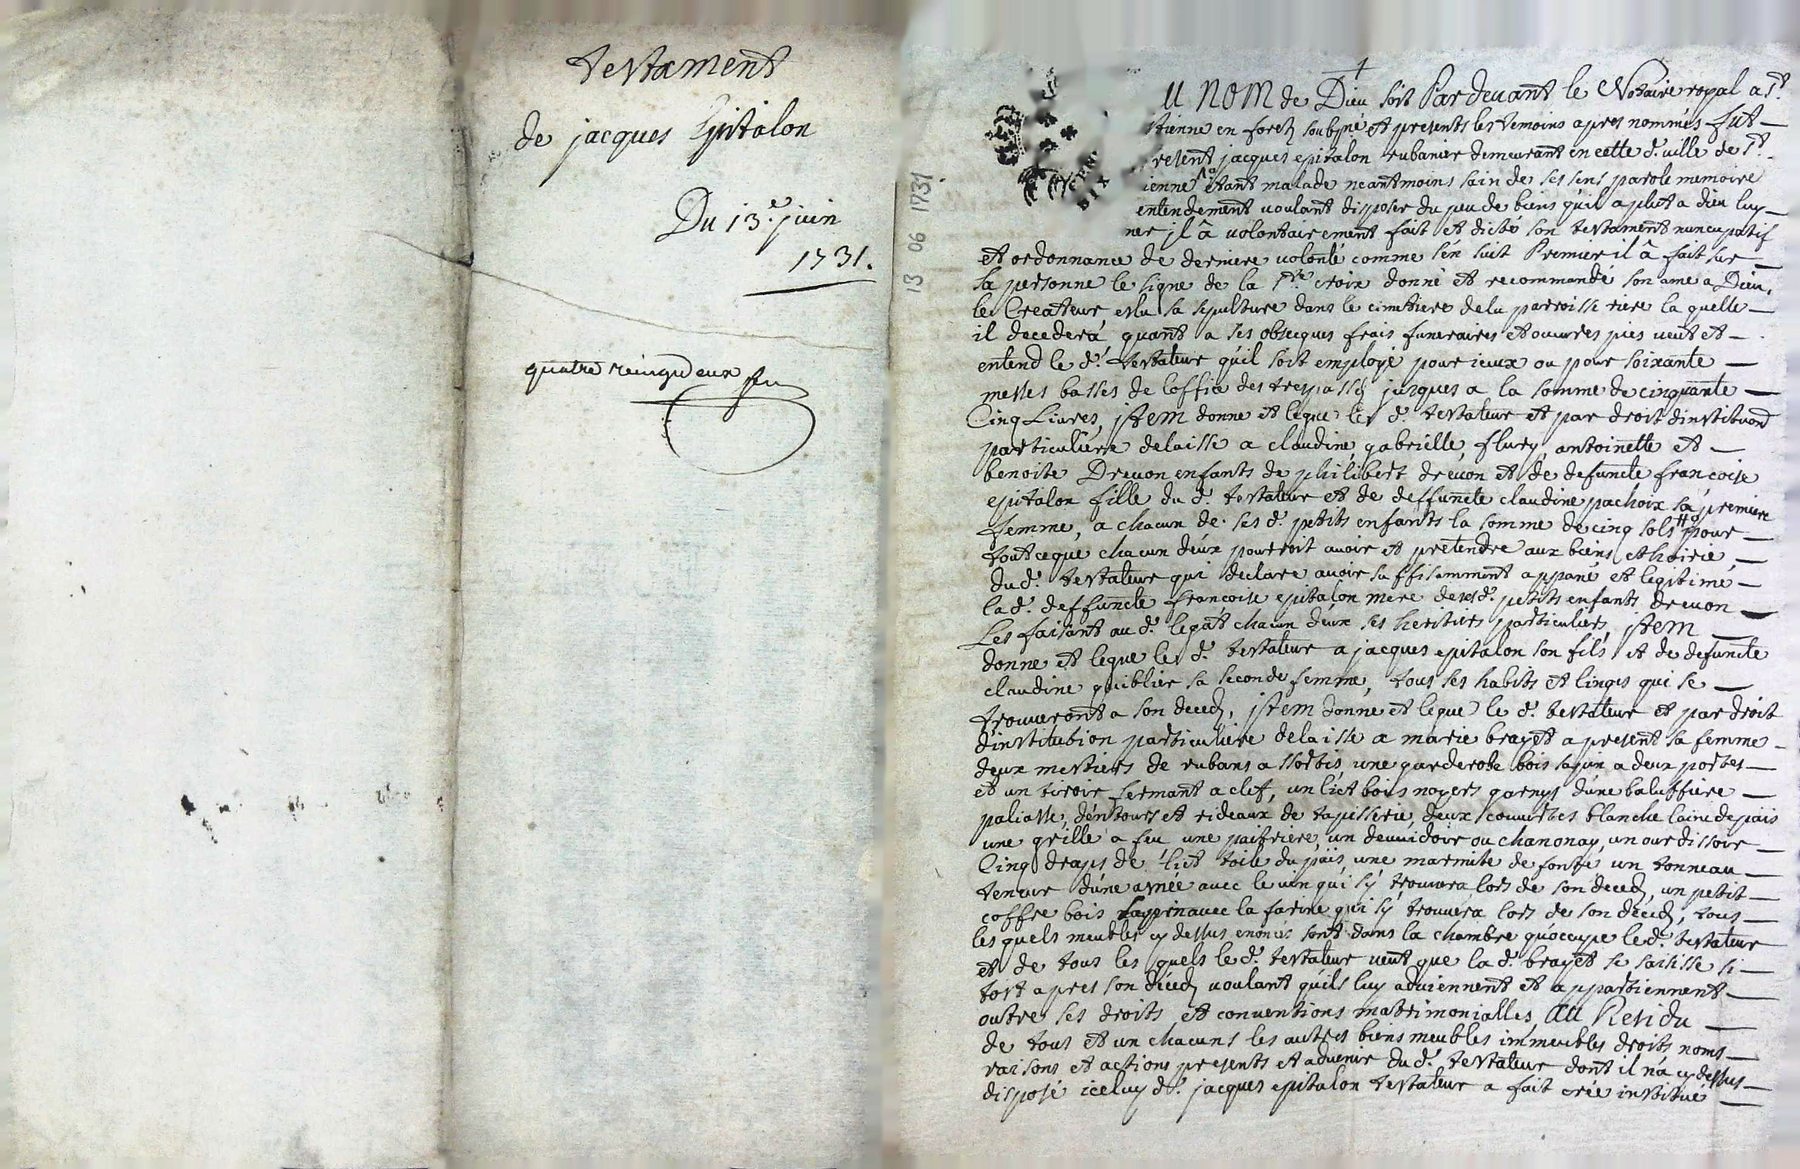 testament
de jacques Epitalon
Du 13.e juin
1731.
quatre vingt deux
13 06 1731
u nom de Dieu soit Par devant le Notaire royal a St.
tienne en forez soubsné et presents les temoins apres nommés fut
resent jacques epitalon rubanier demeurant en cette d. ville de St.
ienne étant malade neantmoins sain de ses sens parole memoire
entendement voulant disposer du peu de biens qu'il a plut a dieu luy
ner il â volontairement fait et dicté son testament nuncupatif
et ordonnance de derniere volonté comme s'en suit Premier il â fait sur
sa personne le signe de la Ste croix donné et recommandé son ame a Dieu,
le Createur eslu sa sepulture dans le cimetiere de la parroisse riere la quelle
il decedera quant a ses obseques frais funeraires et œuvres pies veut et
entend le d. testateur qu'il soit employé pour iceux ou pour soixante
messes basses de l'office des trespassez jusques a la somme de cinquante
Cinq Livres, jtem donne et legue led. testateur et par droit d'institution
particuliere delaisse a claudine, gabrielle, flury, antoinette et
benoite Drevon enfants de philibert drevon et de defuncte francoise
epitalon fille du d. testateur et de deffuncte claudine pachoix sa premiere
femme, a chacun de ses d. petits enfants la somme de cinq sols pour
tout ce que chacun d'eux pourroit avoir et pretendre aux biens et hoirie
du d. testateur qui declare avoir suffisamment appané et legitimé
la d. deffuncte francoise epitalon mere des d. petits enfants drevon
Les faisant au d. legat chacun d'eux ses heritiers particuliers jtem
donne et legue led. testateur a jacques epitalon son fils et de defuncte
claudine guiblier sa seconde femme, tous ses habits et linges qui se
trouveront a son decez, jtem donne et legue le d. testateur et par droit
d'institution particuliere delaisse a marie brayet a present sa femme
deux mestiers de rubans assortis, une garderobe bois sapin a deux portes
et un tiroir fermant a clef, un lict bois noyers garnys d'une baluffiere
paliasse, d'entours et rideaux de tapisserie, deux couvertes blanche laine de païs
une grille a feu une paifriere, un devuidoir ou chanonay, un ourdissoir
Cinq draps de lict toile du païs une marmite de fonte un tonneau
teneur d'une asnée avec le vin qui s'y trouvera lors de son decez, un petit
coffre bois sappin avec la farine qui s'y trouvera lors de son decez, tous
les quels meubles cy dessus enoncés sont dans la chambre qu'occupe le d. testateur
et de tous les quels le d. testateur veut que la d. brayet se saisisse si
tost apres son décez voulant qu'ils luy adviennent et appartiennent
outre ses droits et conventions matrimonialles, Au Residu
de tous et un chacuns les autres biens meubles immeubles droits noms
raisons et actions presents et advenir du d. testateur dont il n'a cy dessus
disposé iceluy d. jacques epitalon testateur a fait crée institué